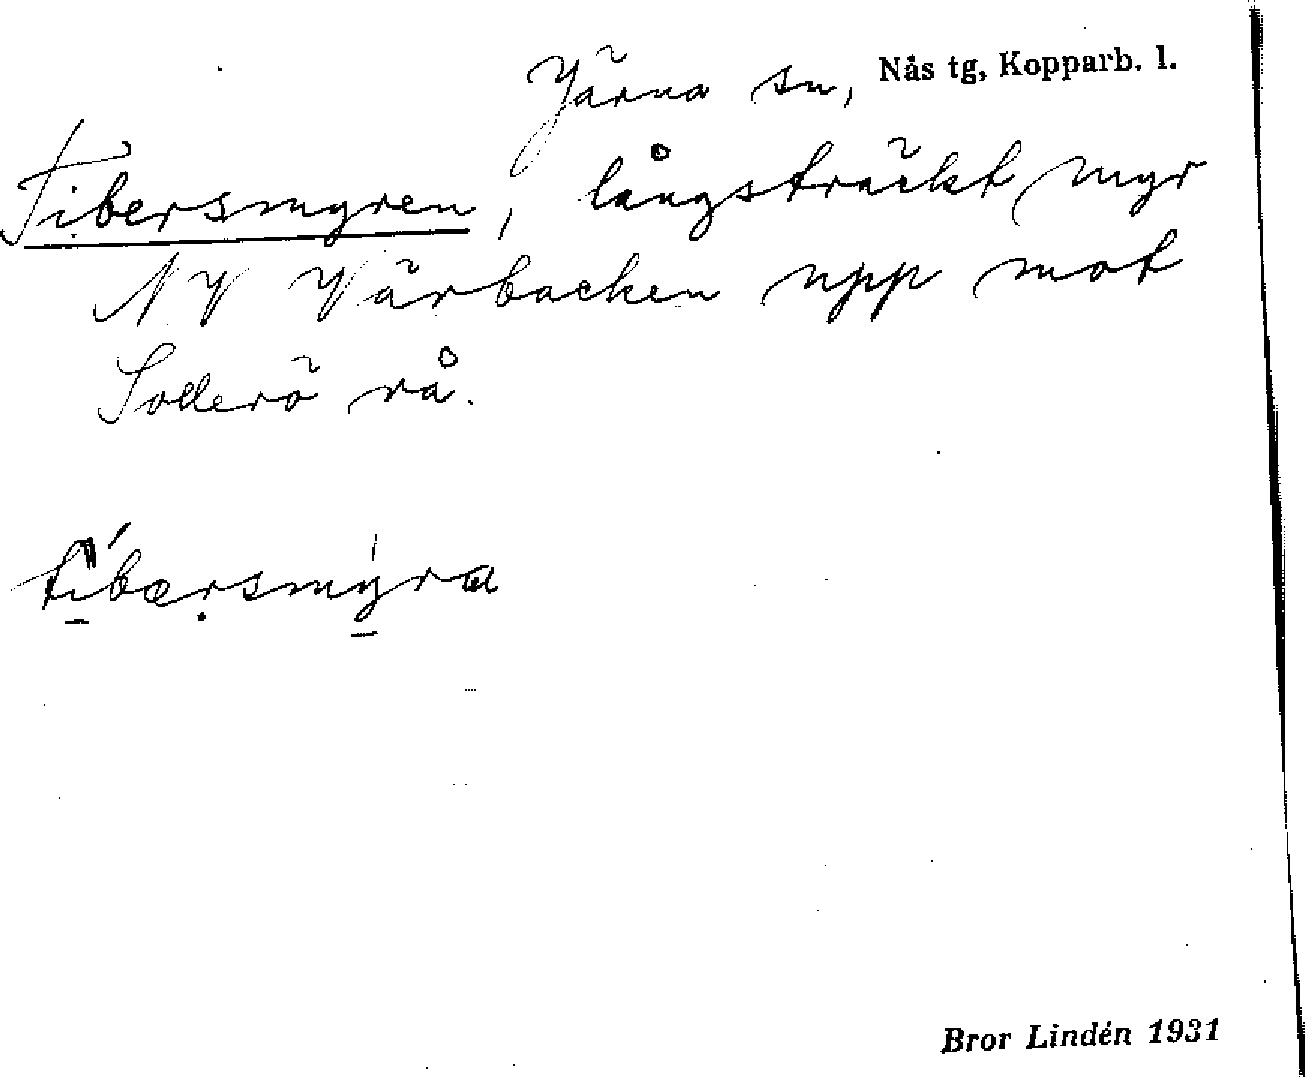 Järna sn, Nås tg, Kopparb. l.
Tibersmyren, långsträckt myr
NV Vårbacken upp mot
Sollerö rå.
tibærsmyra
Bror Lindén 1931